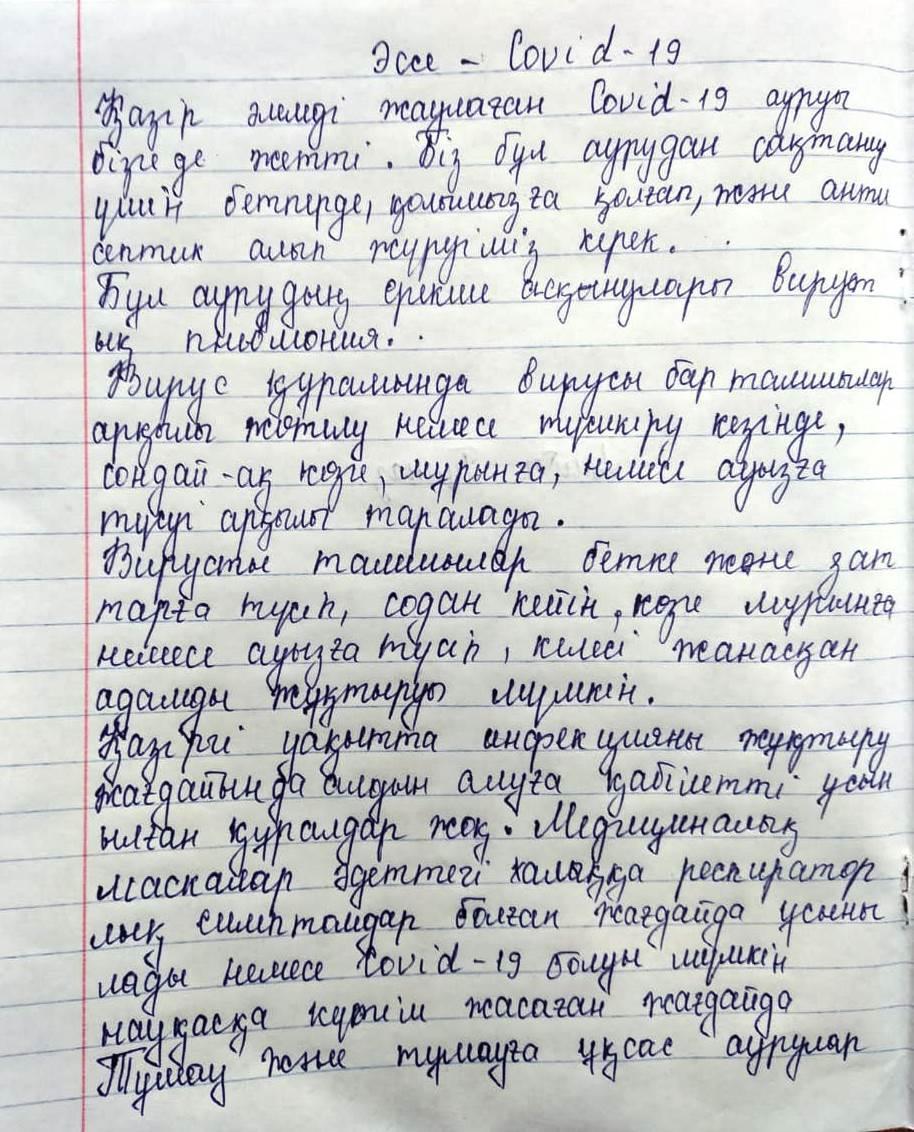 Эссе - Covid-19
Қазір әлемді жаулаған Covid-19 ауруы
бізге де жетті. Біз бұл аурудан сақтану
үшін бетперде, қолымызға қолғап, және анти
септик алып жүруіміз керек.
Бұл аурудың ерекше асқынулары вируст
ық пневмония.
Вирус құрамында вирусы бар тамшылар
арқылы жөтелу немесе түшкіру кезінде,
сондай-ақ көзге, мұрынға, немесе ауызға
түсуі арқылы таралады.
Вирусты тамшылар бетке және зат
тарға түсіп, содан кейін, көзге мұрынға
немесе ауызға түсіп, келесі жанасқан
адамды жұқтыруы мүмкін.
Қазіргі уақытта инфекцияны жұқтыру
жағдайында алдын алуға қабілетті ұсын
ылған құралдар жоқ. Медициналық
маскалар әдеттегі халыққа респиратор
лық симптомдар болған жағдайда ұсыны
лады немесе Covid-19 болуы мүмкін
науқасқа күтім жасаған жағдайда
Тұмау және тұмауға ұқсас аурулар